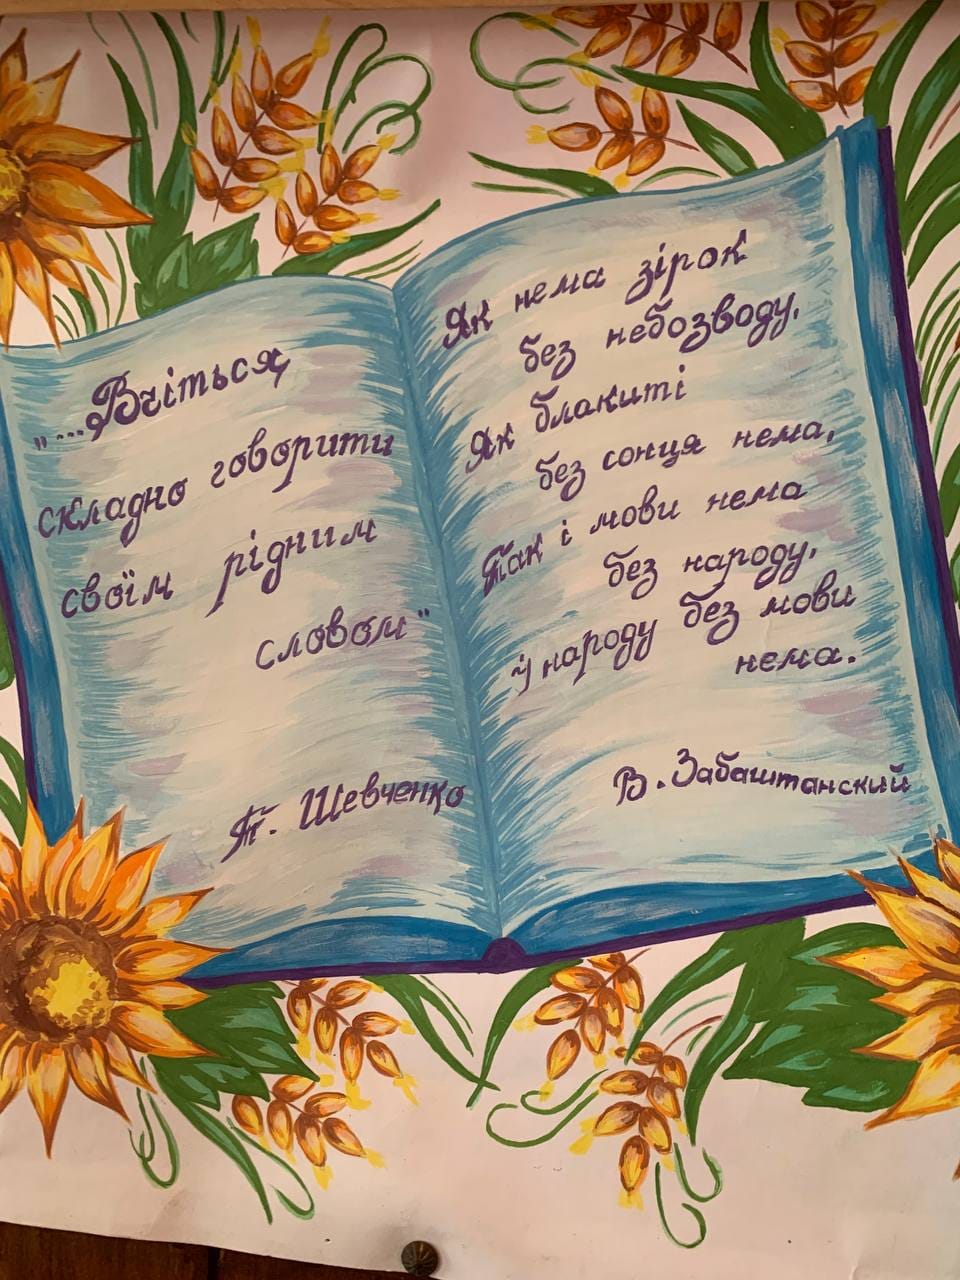 "...Вчіться
складно говорити
своїм рідним
словом"
Т. Шевченко
Як нема зірок
без небозводу,
Як блакиті
без сонця нема,
Так і мови нема
без народу,
й народу без мови
нема.
В. Забаштанский